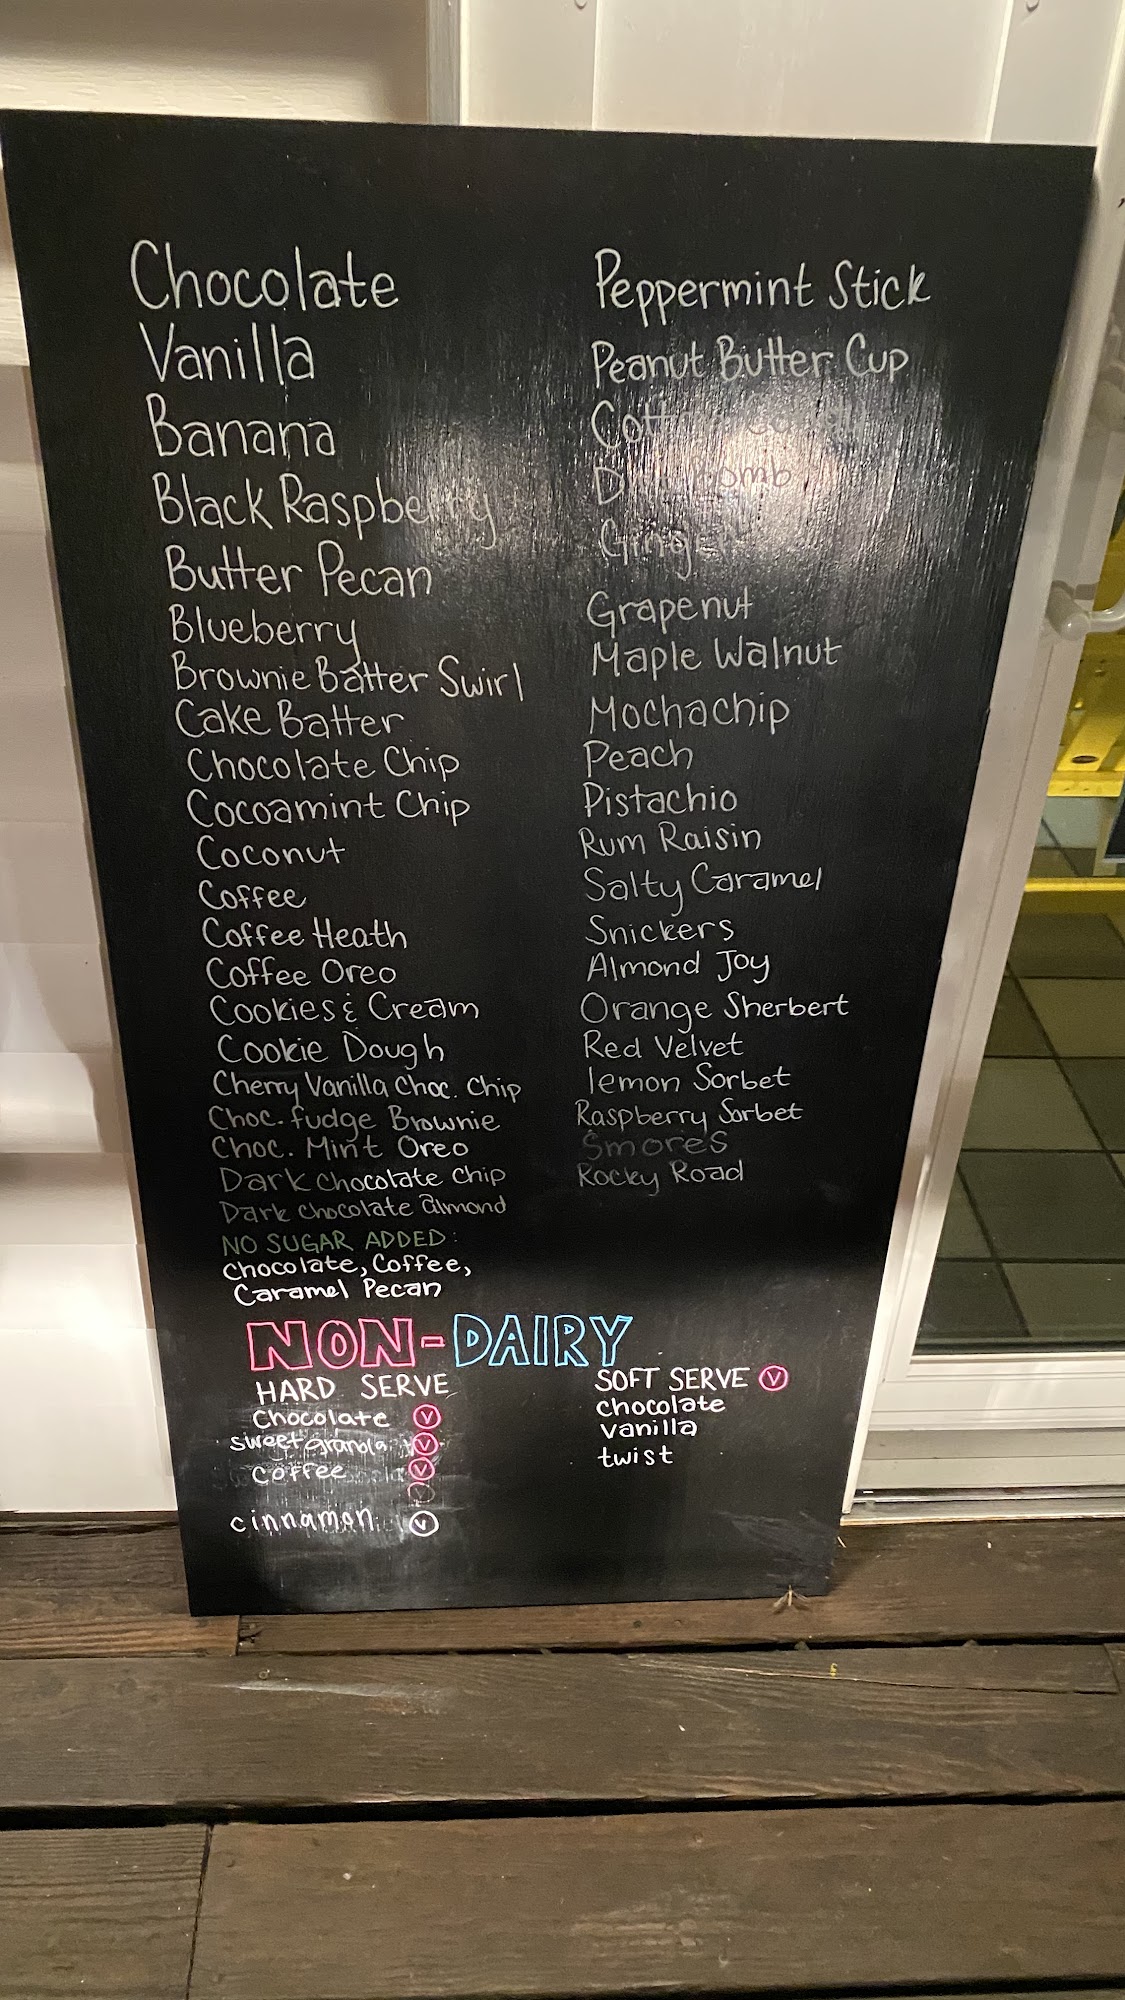 Chocolate
Vanilla
Banana
Black Raspberry
Butter Pecan
Blueberry
Brownie Batter Swirl
Cake Batter
Chocolate Chip
Cocoamint Chip
Coconut
Coffee
Coffee Heath
Coffee Oreo
Cookies & Cream
Cookie Dough
Cherry Vanilla Choc. Chip
Choc. fudge Brownie
Choc. Mint Oreo
Dark chocolate Chip
Dark chocolate almond
NO SUGAR ADDED:
Chocolate, Coffee,
Caramel Pecan
Peppermint Stick
Peanut Butter Cup
Cotton Candy
Bomb
Ginger
Grapenut
Maple Walnut
Mochachip
Peach
Pistachio
Rum Raisin
Salty Caramel
Snickers
Almond Joy
Orange Sherbert
Red Velvet
lemon Sorbet
Raspberry Sorbet
Smores
Rocky Road
NON-DAIRY
HARD SERVE
Chocolate V
sweet granola V
coffee V
cinnamon V
SOFT SERVE V
chocolate
vanilla
twist